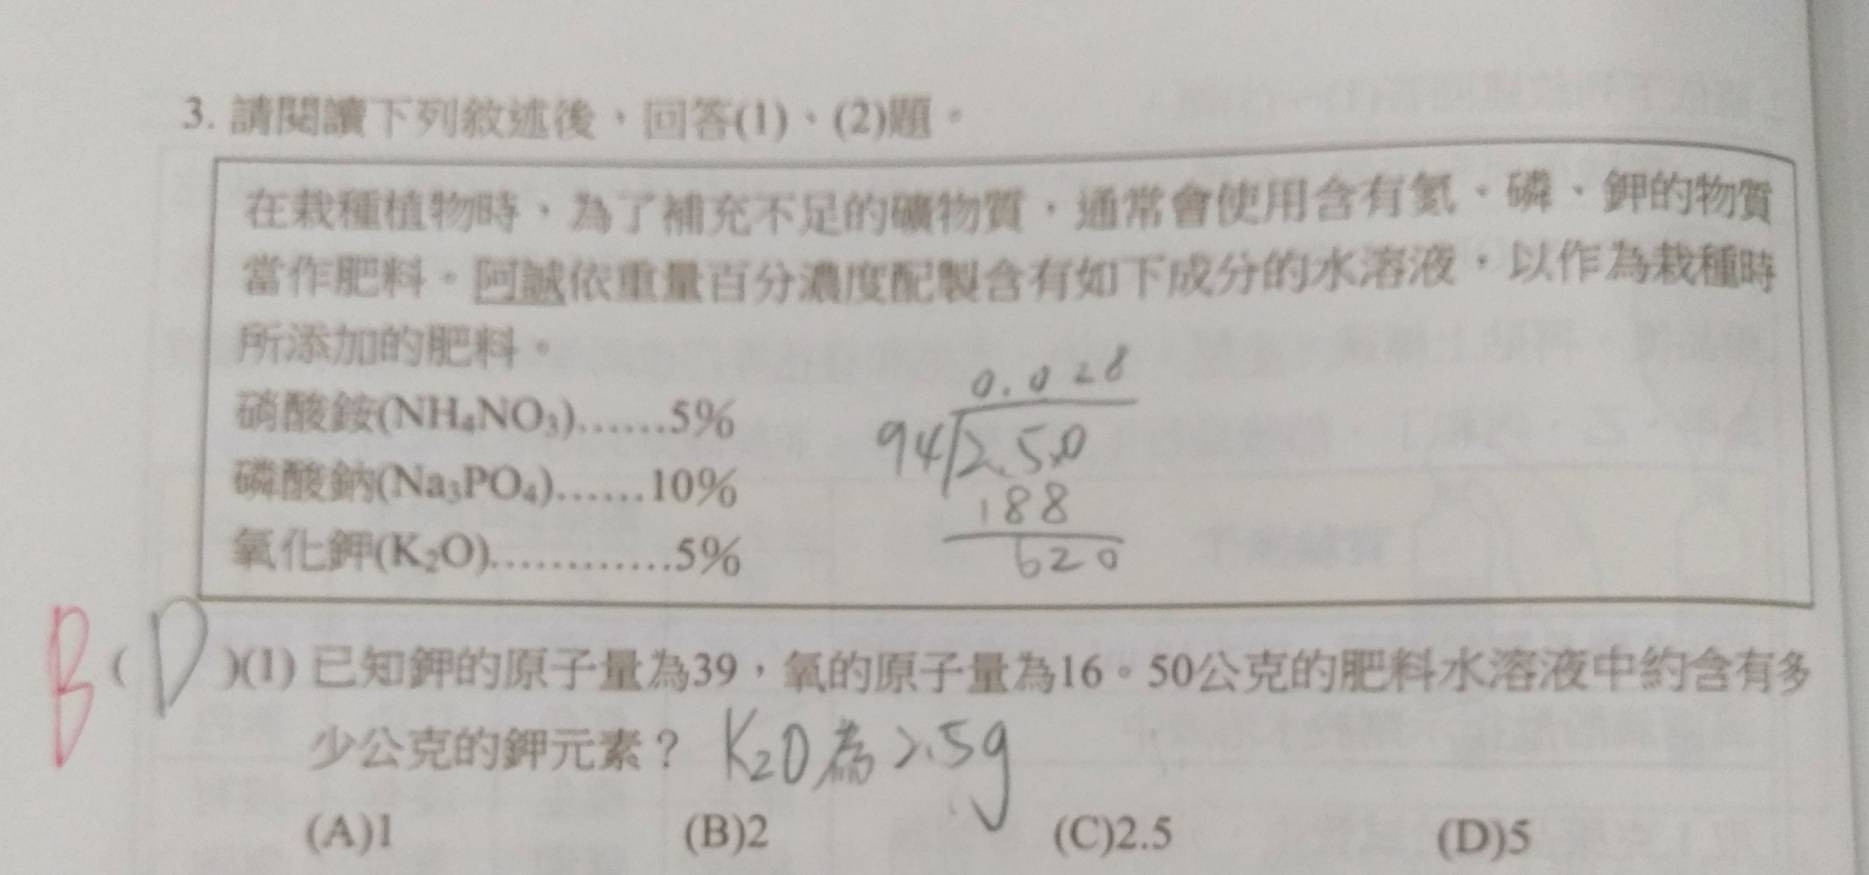 3. 請閱讀下列敘述後，回答(1)、(2)題。
在栽種植物時，為了補充不足的礦物質，通常會使用含有氮、磷、鉀的物質
當作肥料。阿誠依重量百分濃度配製含有如下成分的水溶液，以作為栽種時
所添加的肥料。
硝酸銨(NH₄NO₃)……5%
磷酸鈉(Na₃PO₄)……10%
氧化鉀(K₂O)…………5%
0.028
94 2.50
188
620
B(D)(1) 已知鉀的原子量為39，氧的原子量為16。50公克的肥料水溶液中約含有多
少公克的鉀元素？ K₂O為2.5g
(A)1 (B)2 (C)2.5 (D)5